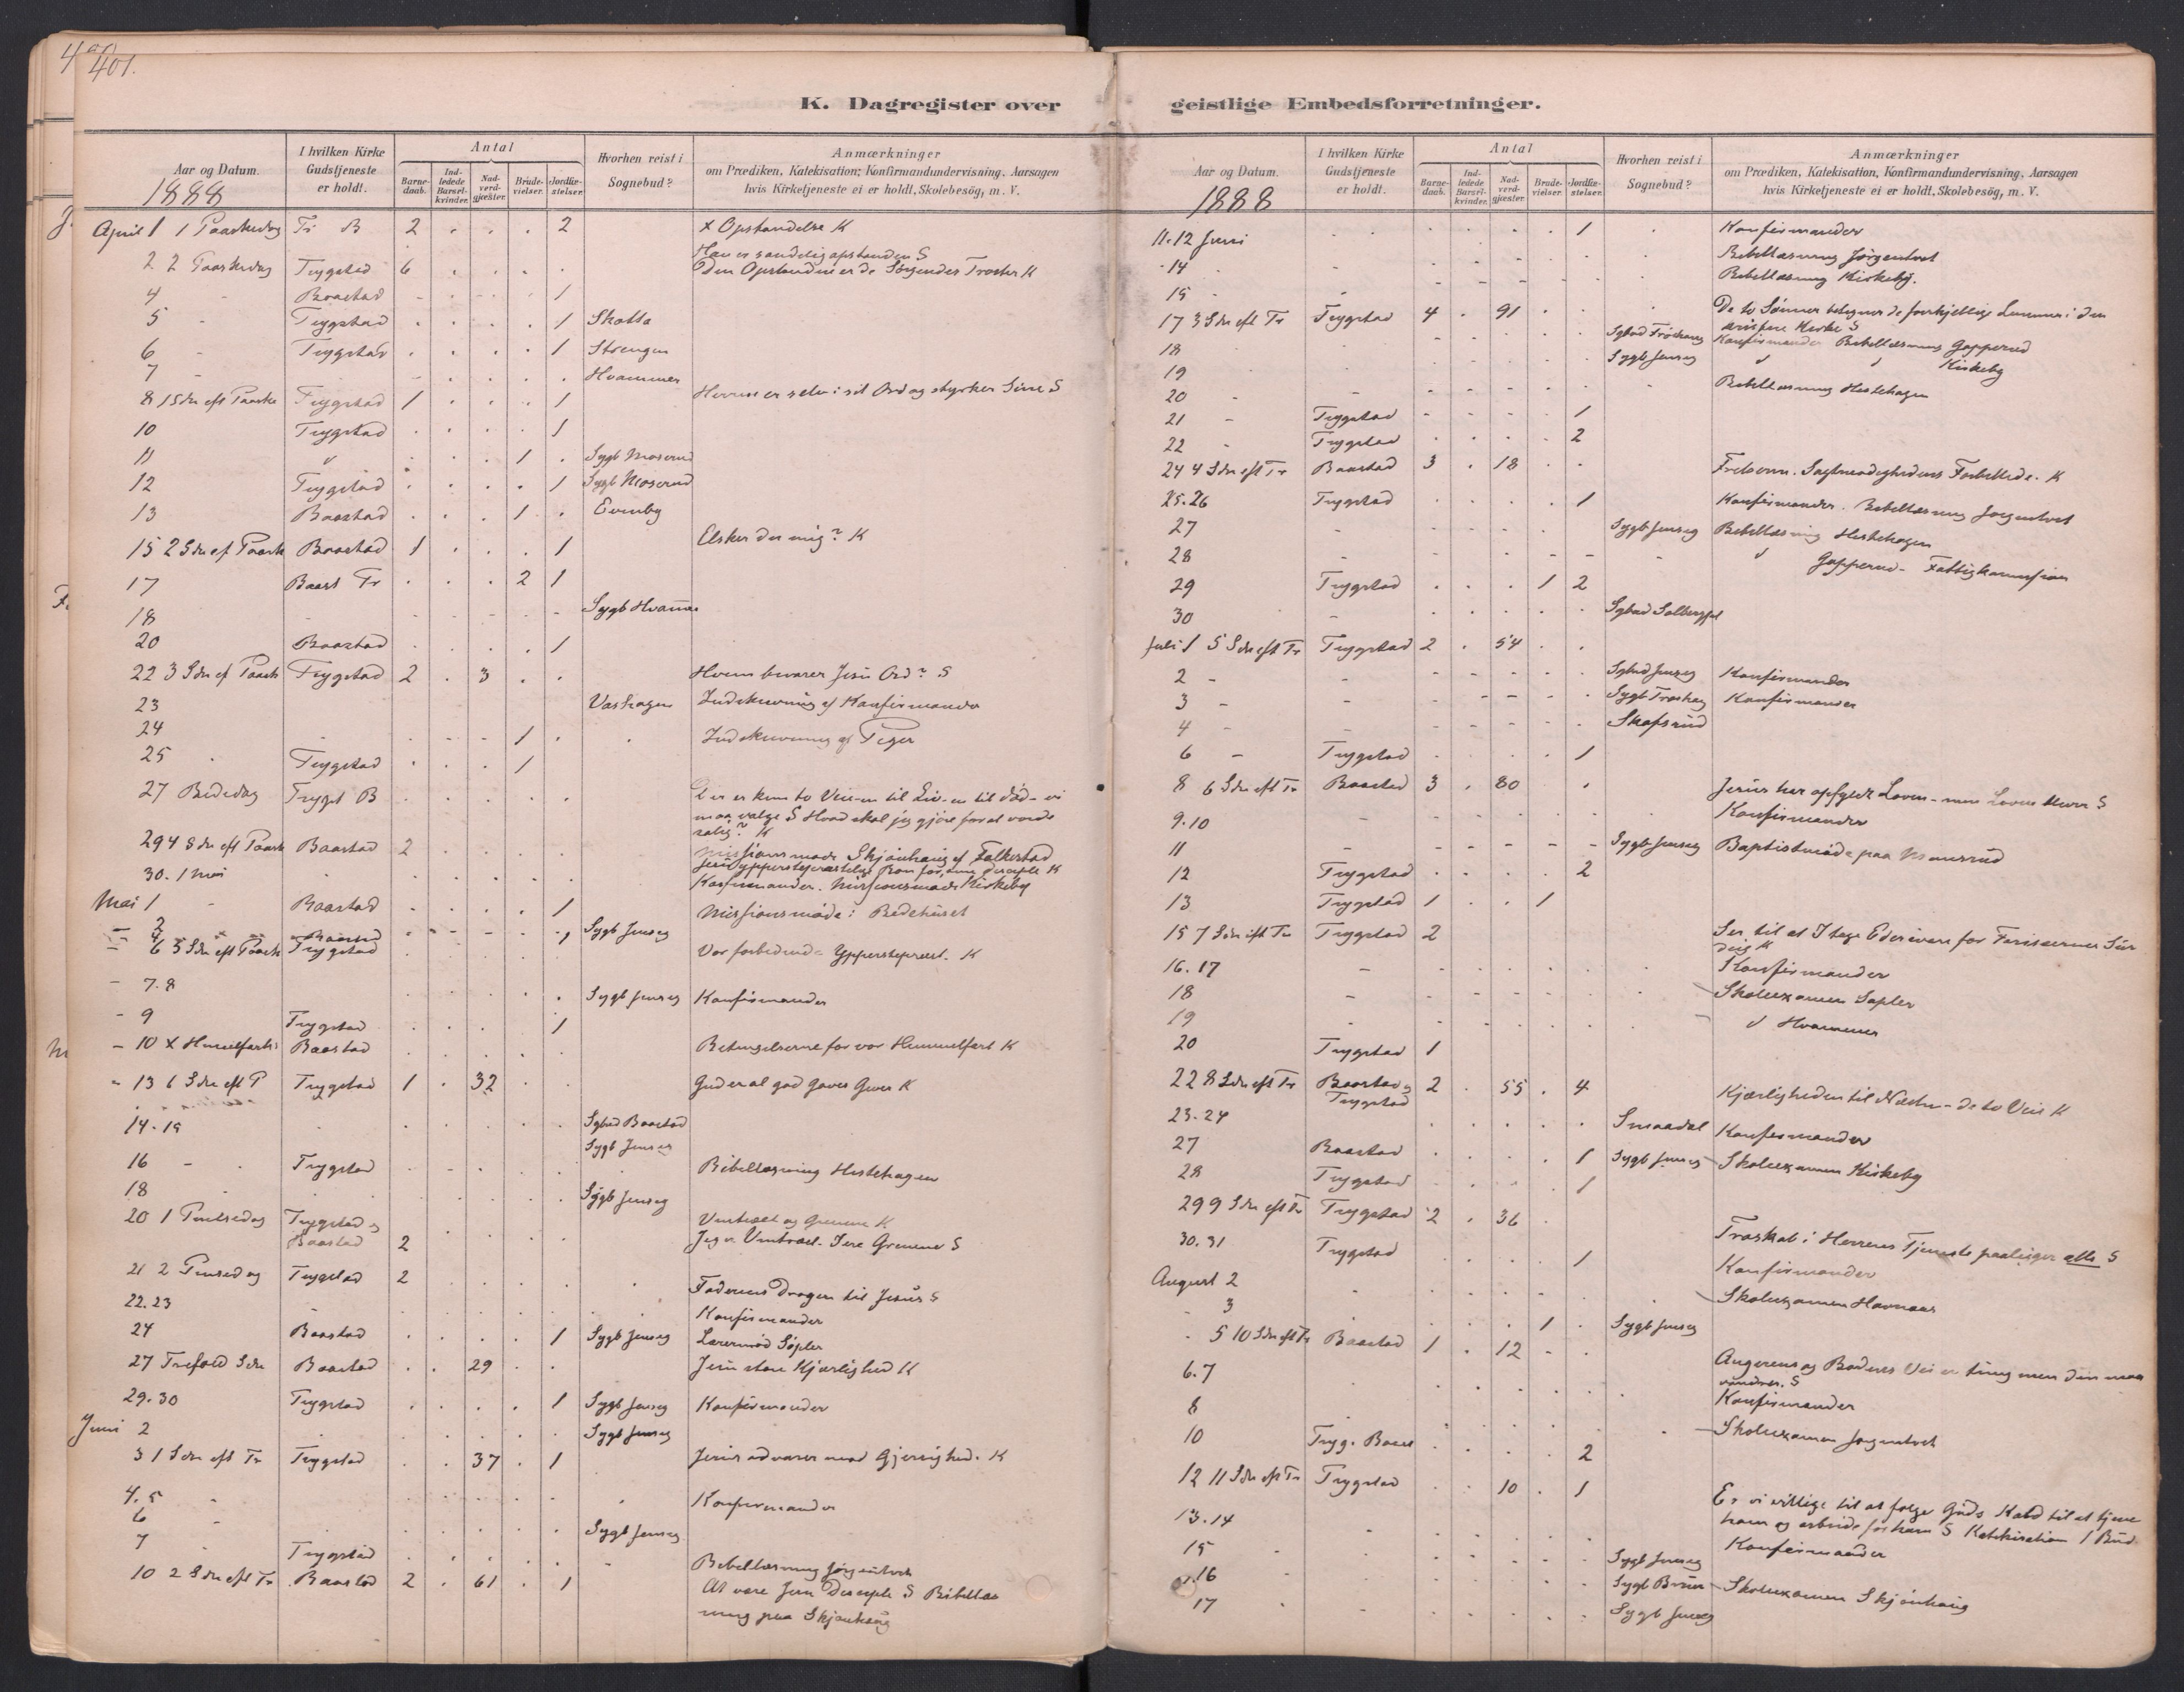 401.
K. Dagregister over
Aar og Datum.
1888
I hvilken Kirke Gudstjeneste er holdt.
Antal
Barne-daab.
Ind-ledede Barsel-kvinder.
Nad-verd-gjæster.
Brude-vielser.
Jordfæ-stelser.
Hvorhen reist i Sognebud?
Anmærkninger
om Prædiken, Katekisation, Konfirmandundervisning, Aarsagen
hvis Kirketjeneste ei er holdt, Skolebesög, m. V.
April 1 1 Paaskedag Tr B 2 . . . 2 x Opstandelse K
Han er sandelig opstanden S
2 2 Paaskedag Trygstad 6 . . . . Den Opstandne er de Sørgendes Trøster K
4 - Baastad - . - . 1
5 - Trygstad . . . . 1 Skatta
6 - Trygstad . . . . 1 Strengen
7 - . . . . . Hvammer
8 1 Sdn eft Paaske Trygstad 1 . . . 1 Herren er selv i sit Ord og styrker Sine S
10 Trygstad . . . . 1
11 " . . . 1 . Sygb Moserud
12 Trygstad . . . . 1 Sygb Moserud
13 Baastad . . . 1 . Evenby
15 2 Sdn ef Paask Baastad 1 . . . 1 Elsker du mig? K
17 Baast Tr . . . 2 1
18 - - - - - - Sygb Hvammer
20 Baastad . . . . 1
22 3 Sdn ef Paask Trygstad 2 . 3 . . Hvem bevarer Jesu Ord? S
23 Indskrivning af Konfirmander
24 - . - - 1 . . Indskrivning af Piger
25 . Trygstad . . . 1
27 Bededag Trygst B . . . . . Der er kun to Veie - en til Liv - en til Død - vi
maa vælge S Hvad skal jeg gjøre for at vorde
salig? K
29 4 Sdn eft Paask Baastad 2 . . . . Missionsmøde Skjønhaug af Falkestad
Jesu ypperstepræstelige Bøn for sine Disciple K
30. 1 Mai . . . . . . Konfirmander. Missionsmøde Kirkeby
Mai 1 - Baastad . . . . 1 Missionsmøde i Bedehuset
- 2 - - - - - Sygb Jenseg
- 4 Baastad
- 6 5 Sdn eft Paask Trygstad . . . . Vor forbedende Ypperstepræst. K
- 7.8 . . . . . Sygb Jenseg Konfirmander
- 9 Trygstad . . . . 1
- 10 x Himelfarts Baastad . . . . . Betingelserne for vor Himmelfart K
- 13 6 Sdn eft P Trygstad 1 . 32 . . Gud er al god Gaves Giver K
14-15 . . . . . . Sgbud Baastad
Sygb Jenseg
16 - . Trygstad . - . . . . Bibellæsning Hestehagen
18 . . . . . . Sygb Jenseg
20 1 Pintsedag Trygstad og Vintræet og Grenene K
Baastad 2 . . . . Jeg er Vintræet - I ere Grenene S
21 2 Pinsedag Trygstad 2 . . . . . Faderens Dragen til Jesus S
22.23 - . . . . . . Konfirmander
24 Baastad . . . . 1 Sygb Jenseg Lærermød Søpler
27 Trefold Sdn Baastad . . 29 . . Jesu store Kjærlighed K
29.30 Trygstad . . . . 1 Sygb Jenseg Konfirmander
Juni 2 . . . . . . Sygb Jenseg
3 1 Sdn eft Tr Trygstad . . 37 . 1 Jesus advarer mod Gjerrighed. K
4.5 . . . . . . . Konfirmander
6 - . . . . . . Sygb Jenseg
7 " Trygstad . . . . . - Bibellæsning Jørgentvet
10 2 Sdn eft Tr Baastad 2 . 61 . 1 At være Jesu Disciple S Bibellæs
ning paa Skjønhaug
geistlige Embedsforretninger.
Aar og Datum.
1888
I hvilken Kirke Gudstjeneste er holdt.
Antal
Barne-daab.
Ind-ledede Barsel-kvinder.
Nad-verd-gjæster.
Brude-vielser.
Jordfæ-stelser.
Hvorhen reist i Sognebud?
Anmærkninger
om Prædiken, Katekisation, Konfirmandundervisning, Aarsagen
hvis Kirketjeneste ei er holdt, Skolebesög, m. V.
11.12 Juni . . . . . 1 . Konfirmander
14 - - - - - - . Bibellæsning Jørgentvet
15 - - - - - - . Bibellæsning Kirkeby.
17 3 Sdn eft Tr Trygstad 4 . 91 . . . De to Sønner betegner de forskjellige Lemmer i den
kristne Kirke S
18 . . . . . Sgbud Frøshaug Konfirmander Bibellæsning Gopperud
19 . . . . . Sygb Jenseg " " Kirkeby
20 - - - - - - - Bibellæsning Hestehagen
21 - Trygstad - - - - 1
22 - Trygstad . . . . 2
24 4 Sdn eft Tr Baastad 3 . 18 . . Frelseren. Sagtmodighedens Forbillede. K
25.26 Trygstad . . . . 1 Konfirmander. Bibellæsning Jørgentvet
27 - - - - - - Sygb Jenseg Bibellæsning Hestehagen
28 - - - - - - - " Gopperud - Fattigkommision
29 Trygstad . . . 1 2
30 - . . . . . Sgbud
Juli 1 5 Sdn eft Tr Trygstad 2 . 54 . .
2 - - - - - - . Sgbud Jenseg Konfirmander
3 - - - - - - Sygb Konfirmander
4 - - - - - - . Skofsrud
6 - Trygstad . . . . 1
8 6 Sdn eft Tr Baastad 3 . 80 . Jesus har opfyldt Loven - men Lovens Herre S
9.10 - - . . . . . Konfirmander
11 - - - - - - Sygb Jenseg Baptistmøde paa Monsrud
12 Trygstad . . . . 2
13 Trygstad 1 . . 1
15 7 Sdn eft Tr Trygstad 2 Ser til at I tage Eder ivare for Farisæernes Sur
deig K
16.17 - . . . . . . Konfirmander
18 - - - - - - . Skoleexamen Søpler
19 . . . . . . . " Hvammer
20 Trygstad 1
22 8 Sdn eft Tr Baastad og 2 . 55 . 4 Kjærligheden til Næsten - de to Veie K
Trygstad
23-24 . . . . . Smaadal Konfirmander
27 Baastad . . . . 1 Sygb Jenseg Skoleexamen Kirkeby
28 Trygstad . . . . 1
29 9 Sdn eft Tr Trygstad 2 . 36 . Troskab i Herrens Tjeneste paaligger alle S
30.31 Trygstad . . . . 1 Konfirmander
August 2 . . . . . . . Skoleexamen Havnaas
- 3 . . . 1 . Sygb Jenseg
- 5 10 Sdn eft Tr Baastad 1 . 12 - . Angerens og Bodens Vei er tung men den maa
vandres. S
6.7 . . . . . . . Konfirmander
8 . . . . . . . Skoleexamen Jørgentvet
10 Tryg. Baast . . . . 2
12 11 Sdn eft Tr Trygstad . . 10 . 1 Er vi villige til at følge Guds Kald til at tjene
ham og arbeide for ham S Katekisation 1 Bud
13.14 - . . . . . Konfirmander
15 - . . . . . . Sygb Jenseg
16 . . . . . . Sygb Skoleexamen Skjønhaug
17 - . . . . . Sygb Jenseg